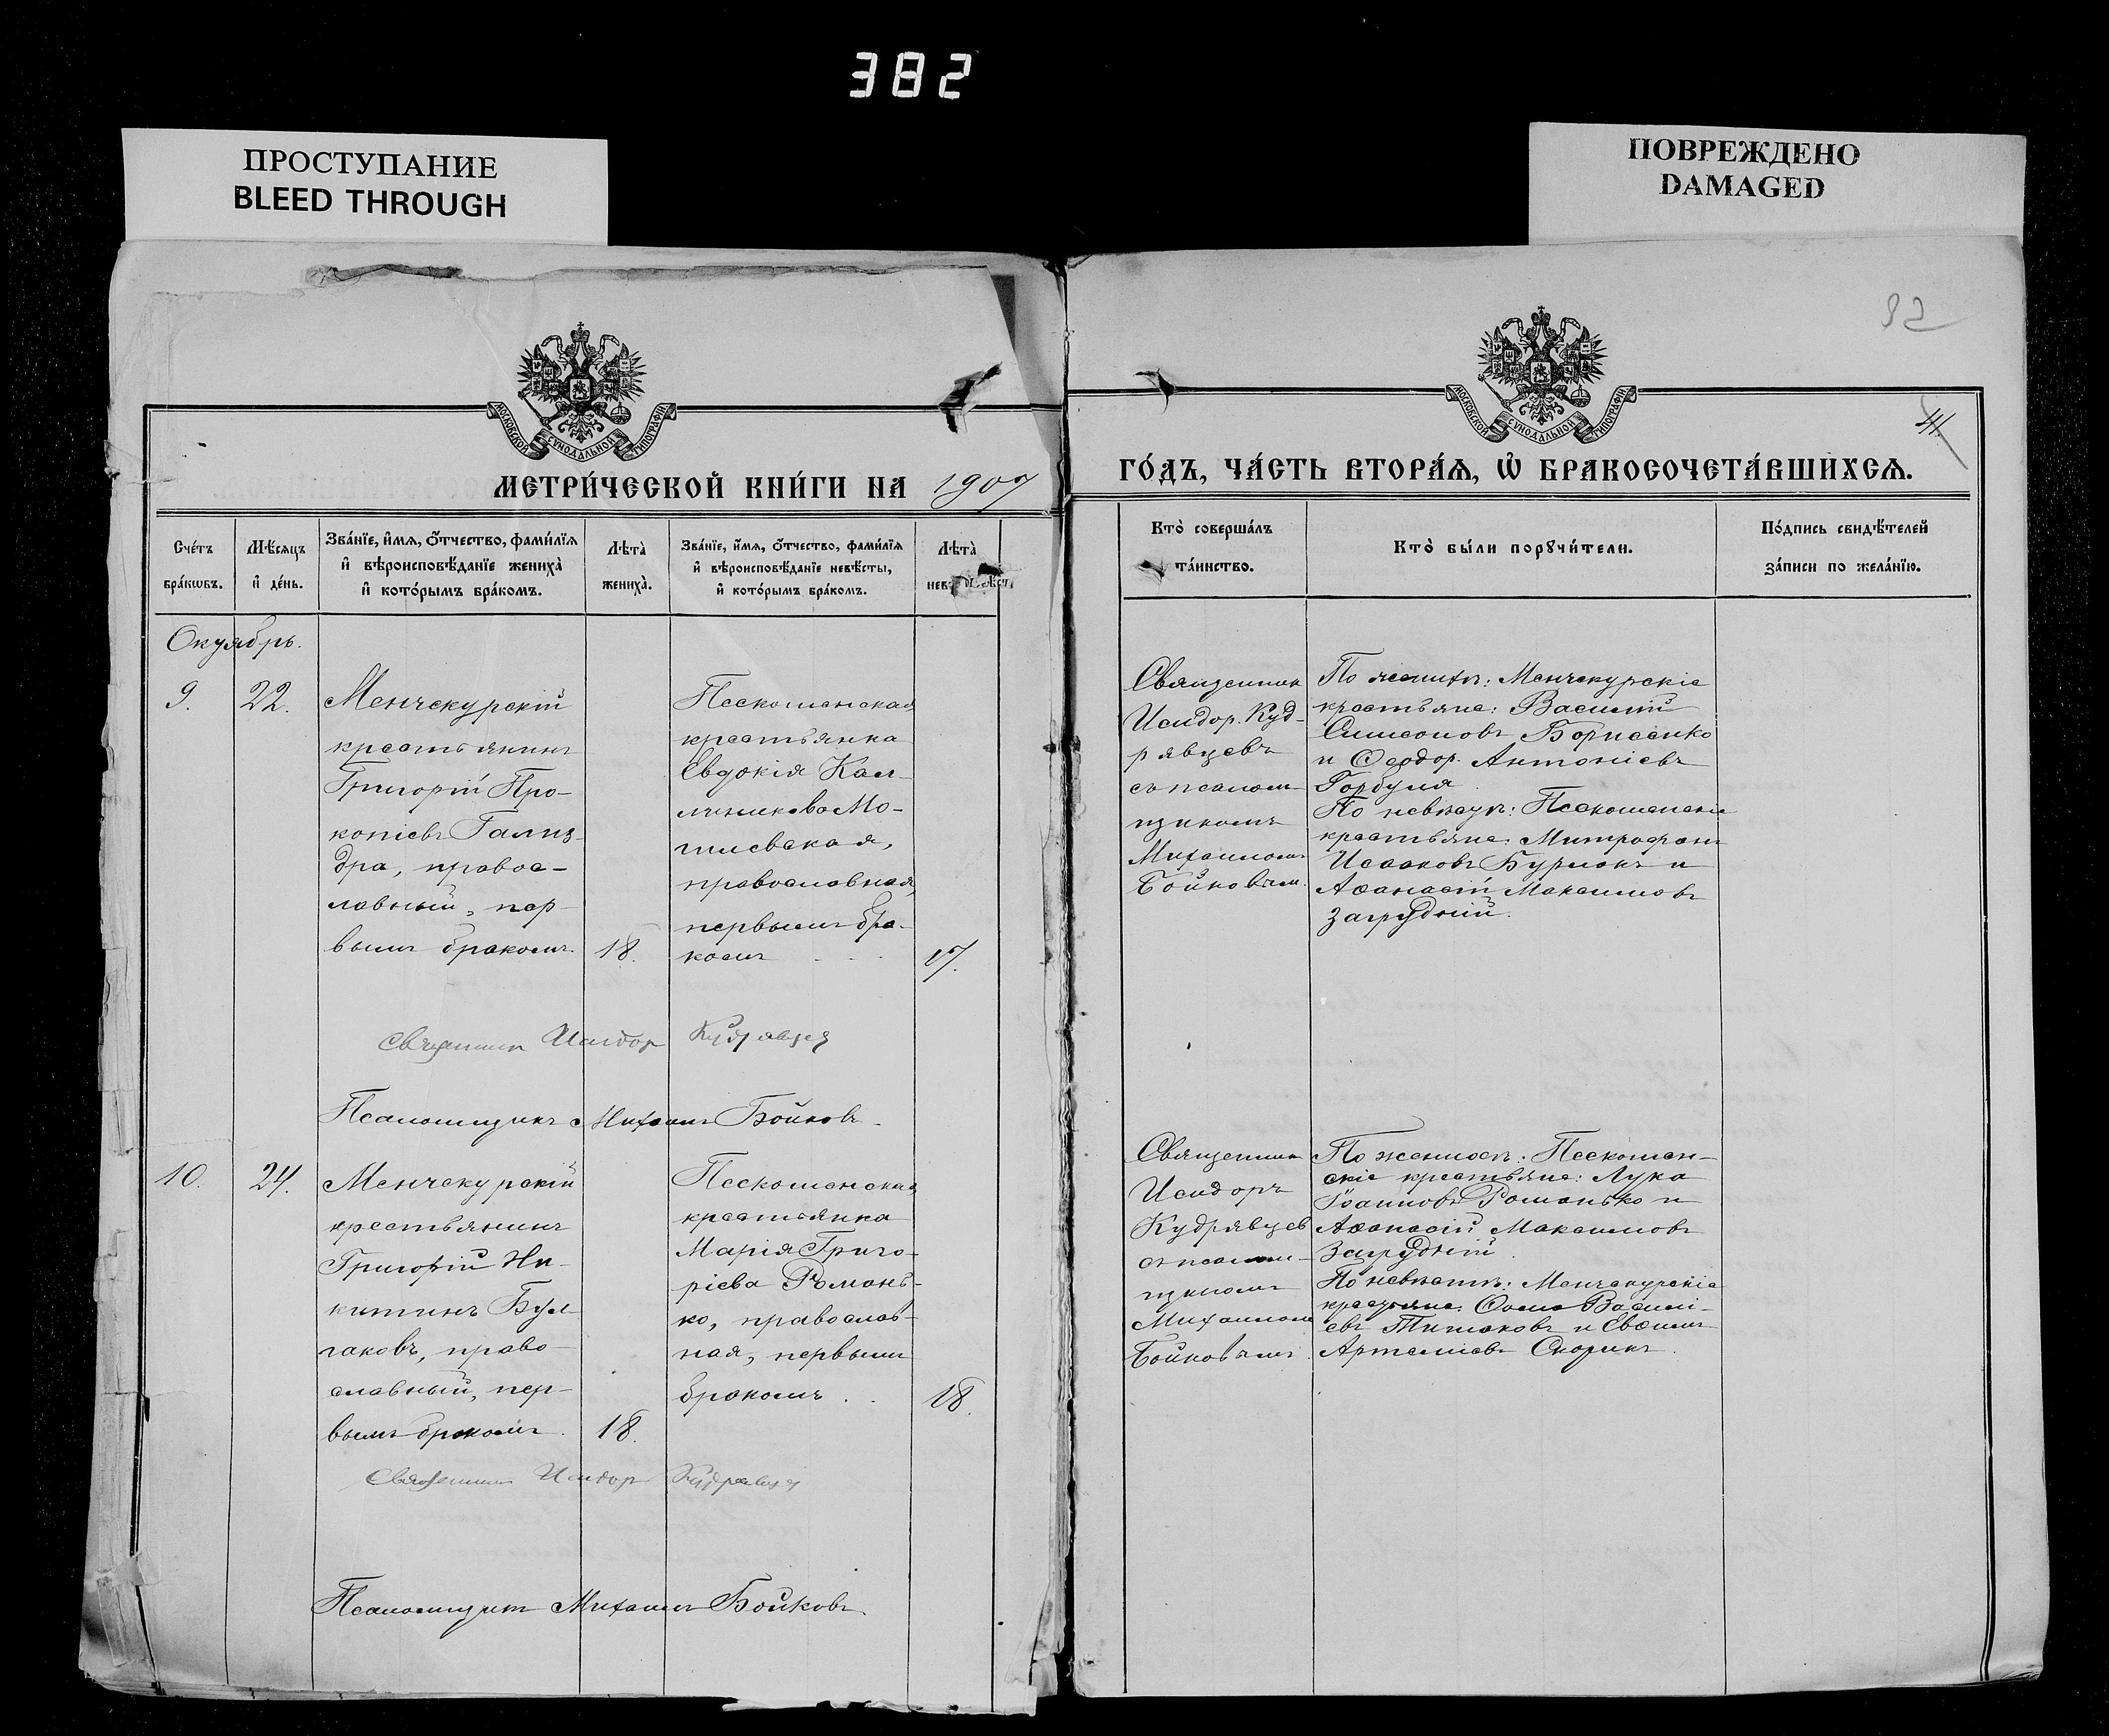 382
ПРОСТУПАНИЕ
BLEED THROUGH
ПОВРЕЖДЕНО
DAMAGED
92
МОСКОВСКОЙ СѴНОДАЛЬНОЙ ТИПОГРАФІИ
МОСКОВСКОЙ СѴНОДАЛЬНОЙ ТИПОГРАФІИ
41
МЕТРИ́ЧЕСКОЙ КНИ́ГИ НА 1907
ГО́ДЪ, ЧА́СТЬ ВТОРА́Ѧ, Ѡ҆ БРАКОСОЧЕТА́ВШИХСѦ.
Сче́тъ
бра́кѡвъ.
Мѣ́сяцъ
и҆ де́нь.
Зва́нїе, и҆́мя, о҆́тчество, фами́лїя
и҆ вѣроисповѣ́данїе жениха̀
и҆ кото́рымъ бра́комъ.
Лѣта̀
жениха̀.
Зва́нїе, и҆́мя, о҆́тчество, фами́лїя
и҆ вѣроисповѣ́данїе невѣ́сты,
и҆ кото́рымъ бра́комъ.
Лѣта̀
нев
Кто̀ соверша́лъ
та́инство.
Кто̀ бы́ли порꙋчи́тели.
По́дпись свидѣ́телей
за́писи по жела́нїю.
Октябрь.
9.
22.
Менчекурскій
крестьянинъ
Григорій Про-
копіевъ Гализ-
дра, правос-
лавный, пер-
вымъ бракомъ.
18.
Пескошенская
крестьянка
Евдокія Кал-
линикова Мо-
гилевская,
православная,
первымъ бра-
комъ
17.
Священник
Исидор. Куд-
рявцевъ
съ псалом-
щикомъ
Михаиломъ
Бойковым.
По женихѣ: Менчекурскіе
крестьяне: Василій
Симеоновъ Борисенко
и Ѳеодор. Антоніевъ
Горбуля
По невѣстѣ: Пескошенскіе
крестьяне: Митрофанъ
Исааковъ Бурлакъ и
Аѳанасій Максимовъ
Загрудній.
Священник Исидор Кудрявцев
Псаломщикъ Михаилъ Бойковъ.
10.
24.
Менчекурскій
крестьянинъ
Григорій Ни-
китинъ Бул-
гаковъ, право-
славный, пер-
вымъ бракомъ.
18.
Пескошенская
крестьянка
Марія Григо-
рієва Романь-
ко, православ-
ная, первымъ
бракомъ . .
18.
Священник
Исидоръ
Кудрявцев
съ псалом-
щикомъ
Михаиломъ
Бойковымъ.
По женихѣ: Пескошен-
скіе крестьяне: Лука
Іоанновъ Романько и
Аѳанасій Максимовъ
Загрудній.
По невѣстѣ: Менчекурскіе
крестьяне: Ѳома Василі-
евъ Тишаковъ и Евѳимъ
Артеміевъ Скорикъ.
Священник Исидор Кудрявцев
Псаломщикъ Михаилъ Бойковъ.